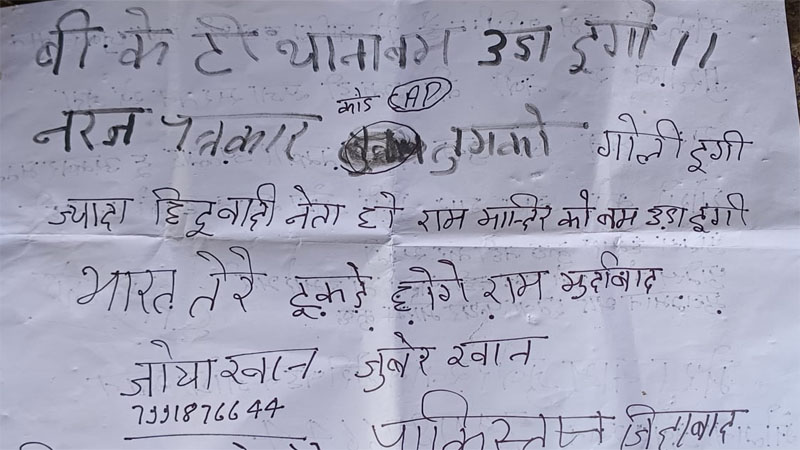 बी के टी थाना बम उड़ा दूंगी ॥
कोड EAP
नरज पत्रकार तुमको गोली दूगी
ज्यादा हिंदूवादी नेता हो राम मान्दिर को बम उड़ा दूंगी
भारत तेरे टूकड़े होगे राम मुर्दाबाद
जोया खान जुबेर खान
7991876644
पाकिस्तान जिंदाबाद